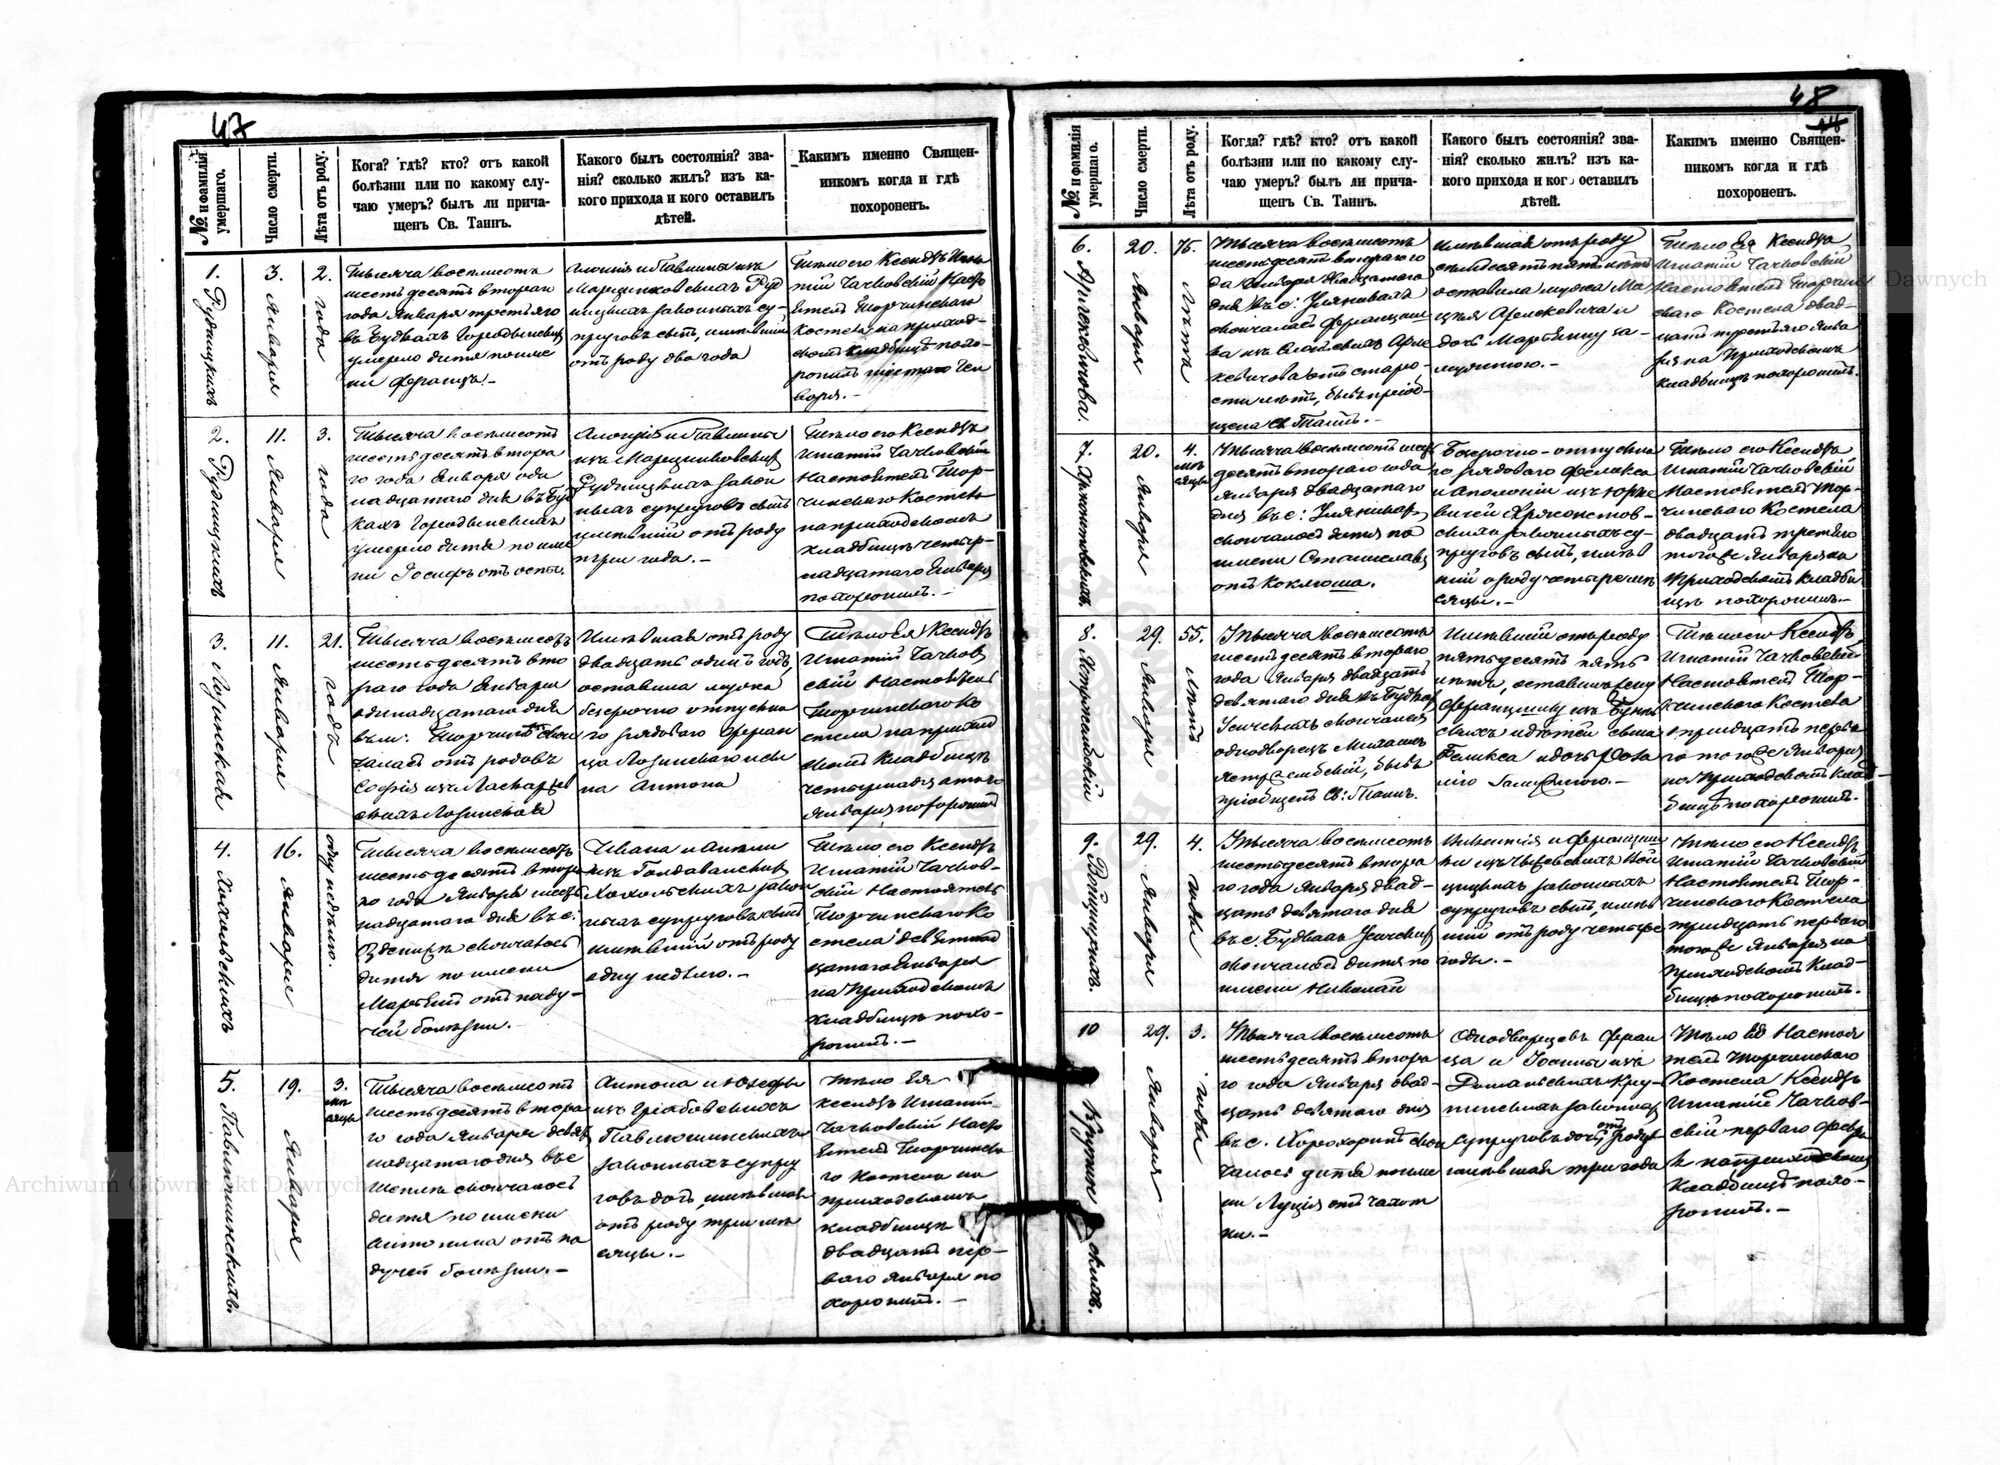 47
№ и фамилія умершаго.
Число смерти.
Лѣта отъ роду.
Кога? гдѣ? кто? отъ какой
болѣзни или по какому слу-
чаю умеръ? былъ ли прича-
щенъ Св. Таинъ.
Какого былъ состоянія? зва-
нія? сколько жилъ? изъ ка-
кого прихода и кого оставилъ
дѣтей.
Какимъ именно Священ-
никомъ когда и гдѣ
похороненъ.
1. Рудницкихъ
3. Января
2. года
Тысяча восемьсотъ
шестьдесятъ втораго
года Января третьяго
въ Будкахъ Городынскихъ
умерло дитя по име
ни Францъ.-
Алоизія и Павлины изъ
Марцинковскихъ Руд
ницкихъ законныхъ су-
пруговъ сынъ, имѣвшій
отъ роду два года
Тѣло его Ксендзъ Игна
тій Чачковскій Насто
ятель Торчинскаго
Костела на приход-
скомъ кладбищѣ похо-
ронилъ шестаго Ген
варя.-
2. Рудницкихъ
11. Января
3. года
Тысяча восемьсотъ
шестьдесятъ втора
го года Января оди
надцатаго дня въ Буд
кахъ Городынскихъ
умерло дитя по име
ни Іосифъ отъ оспы.
Алоизія и Павлины
изъ Марцинковскихъ
Рудницкихъ закон
ныхъ супруговъ сынъ
имѣвшій отъ роду
три года.-
Тѣло его Ксендзъ
Игнатій Чачковскій
Настоятель Тор-
чинскаго Костела
на приходскомъ
кладбищѣ четыр-
надцатаго Января
похоронилъ.-
3. Лозинская
11. Января
21. годъ
Тысяча восемьсотъ
шестьдесятъ вто
раго года Января
одинадцатаго дня
въ м: Торчинѣ скон
чалась отъ родовъ
Софія изъ
Лозинская
Имѣвшая отъ роду
двадцать одинъ годъ,
оставила мужа
безсрочно отпускна
го рядоваго Фран
ца Лозинскаго и сы
на Антона
Тѣло Ея Ксендзъ
Игнатій Чачков
скій Настоятель
Торчинскаго Ко
стела на приход
скомъ Кладбищѣ
четырнадцатаго
Января похоронилъ
4. Хохольскихъ
16. Января
одну недѣлю.
Тысяча восемьсотъ
шестьдесятъ втора
го года Января шест
надцатаго дня въ с.
скончалось
дитя по имени
Марцелъ отъ паду-
чей болѣзни.-
Ивана и Анели
изъ
Хохольскихъ закон
ныхъ супруговъ сынъ
имѣвшій отъ роду
одну недѣлю.-
Тѣло его Ксендзъ
Игнатій Чачков-
скій Настоятель
Торчинскаго Ко
стела девятнад
цатаго Января
на Приходскомъ
кладбищѣ похо-
ронилъ.-
5. Павлюшинскихъ.
19. Января
3. мѣсяцы
Тысяча восемьсотъ
шестьдесятъ втора
го года Января девят
надцатаго дня въ с
скончалось
дитя по имени
Антонина отъ па
дучей болѣзни.-
Антона и Юзефы
изъ Грабовскихъ
Павлюшинскихъ
законныхъ супру
говъ дочь, имѣвшая
отъ роду три мѣ
сяцы.-
Тѣло Ея
Ксендзъ Игнатій
Чачковскій Насто
ятель Торчинска
го Костела на
приходскомъ
кладбищѣ
двадцать пер-
ваго Января по
хоронилъ.-
48
№ и фамилія умершаго.
Число смерти.
Лѣта отъ роду.
Когда? гдѣ? кто? отъ какой
болѣзни или по какому слу-
чаю умеръ? былъ ли прича-
щенъ Св. Таинъ.
Какого былъ состоянія? зва-
нія? сколько жилъ? изъ ка-
кого прихода и ког оставилъ
дѣтей.
Какимъ именно Священ-
никомъ когда и гдѣ
похороненъ.
6.
20. Января
75. Лѣтъ
Тысяча восемьсотъ
шестьдесятъ втораго
да Января двадцатаго
дня въ с: Уляникахъ
скончалась Францишк
ва изъ
отъ старо-
сти лѣтъ, бывъ пріоб-
щена Св Таинъ.-
имѣвшая отъ роду
семьдесятъ пять лѣтъ
оставила мужа Ма
и
дочь Мартину за-
мужнюю.-
Тѣло Ея Ксендзъ
Игнатій Чачковскій
Настоятель Торчин
скаго Костела двад-
цать третьяго Янва
ря на Приходскомъ
кладбищѣ похоронилъ.
7. Хржонстовскихъ.
20. Января
4. мѣсяцы
Тысяча восемьсотъ шест
десятъ втораго года
Января двадцатаго
дня въ с: Уляникахъ
скончалось дитя по
имени Станиславъ
отъ коклюша.
Безсрочно-отпускна
го рядоваго Феликса
и Аполоніи изъ Юрке
вичей Хржонстов-
скихъ законныхъ су-
пруговъ сынъ, имѣв
шій о роду четыре мѣ
сяцы.-
Тѣло его Ксендзъ
Игнатій Чачковскій
Настоятель Тор-
чинскаго Костела
двадцать третьяго
тогоже Января на
Приходскомъ кладби
щѣ похоронилъ.-
8. Ястржембскій
29. Января
55. Лѣтъ
Тысяча восемьсотъ
шестьдесятъ втораго
года Января двадцать
девятаго дня въ Будкахъ
Усичскихъ скончался
однодворецъ Михаилъ
Ястржембскій, бывъ
пріобщенъ Св: Таинъ.
Имѣвшій отъ роду
пятьдесятъ пять
лѣтъ, оставилъ жену
Францишку изъ
и дѣтей сына
Феликса и дочь Роза
лію замужнюю.-
Тѣло его Ксендзъ
Игнатій Чачковскій
Настоятель Тор-
чинскаго Костела
тридцать перва
го тогоже Января
на Приходскомъ клад-
бищѣ похоронилъ.
9. Войцицкихъ.
29. Января
4. годы
Тысяча восемьсотъ
шестьдесятъ втора
го года Января двад-
цать девятаго дня
въ с. Будкахъ Усичских
скончалось дитя по
имени Николай
Викентія и Францишк
ки изъ Вой
цицкихъ законныхъ
супруговъ сынъ, имѣв
шій отъ роду четыре
годы.-
Тѣло его Ксендзъ
Игнатій Чачковскій
Настоятель Тор-
чинскаго Костела
тридцать перваго
тогоже Января на
Приходскомъ Клад-
бищѣ похоронилъ.
10 Крупинскихъ.
29. Января
3. года
Тысяча восемьсотъ
шестьдесятъ втора
го года Января двад-
цать девятаго дня
въ с. Хорохоринѣ скон
чалось дитя по име
ни Луція отъ чахот
ки.-
Однодворцевъ Фран
ца и изъ
Крупинскихъ законныхъ
супруговъ дочь отъ роду
имѣвшая три года
Тѣло Ея Настоя
тель Торчинскаго
Костела Ксендзъ
Игнатій Чачков-
скій перваго Февра
ля на приходскомъ
Кладбищѣ похо-
ронилъ.-
Archiwum Główne Akt Dawnych
Archiwum Główne Akt Dawnych